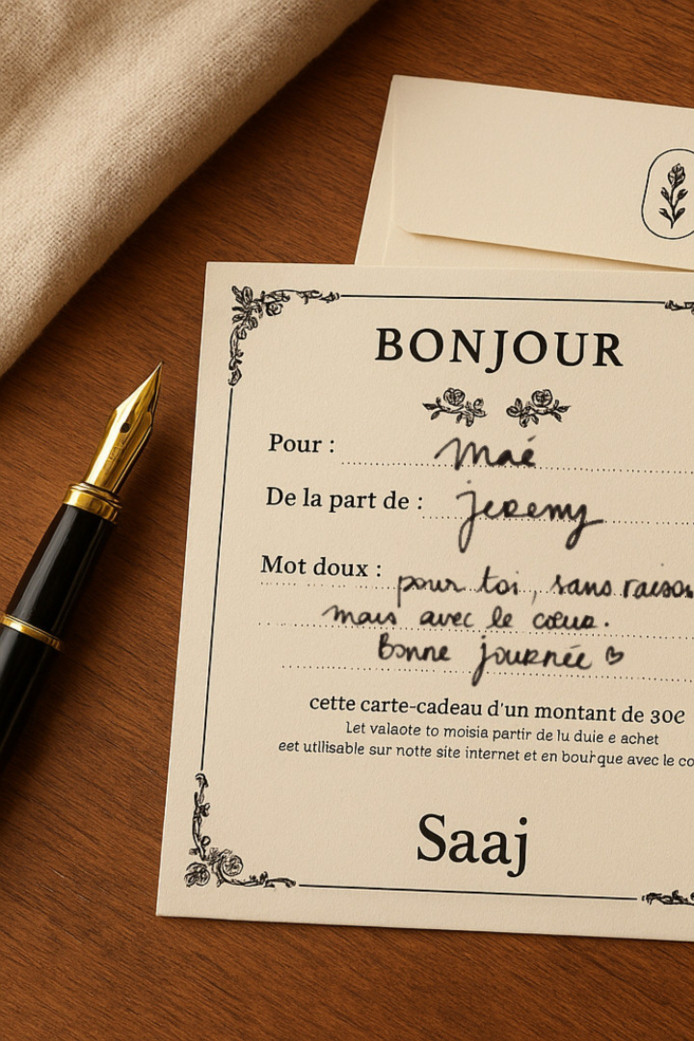 BONJOUR
Pour : Maé
De la part de : jeremy
Mot doux : pour toi, sans raison
mais avec le cœur.
Bonne journée ♡
cette carte-cadeau d'un montant de 30€
Let valaote to moisia partir de lu duie e achet
eet utllisable sur notte site internet et en bourque avec le co
Saaj